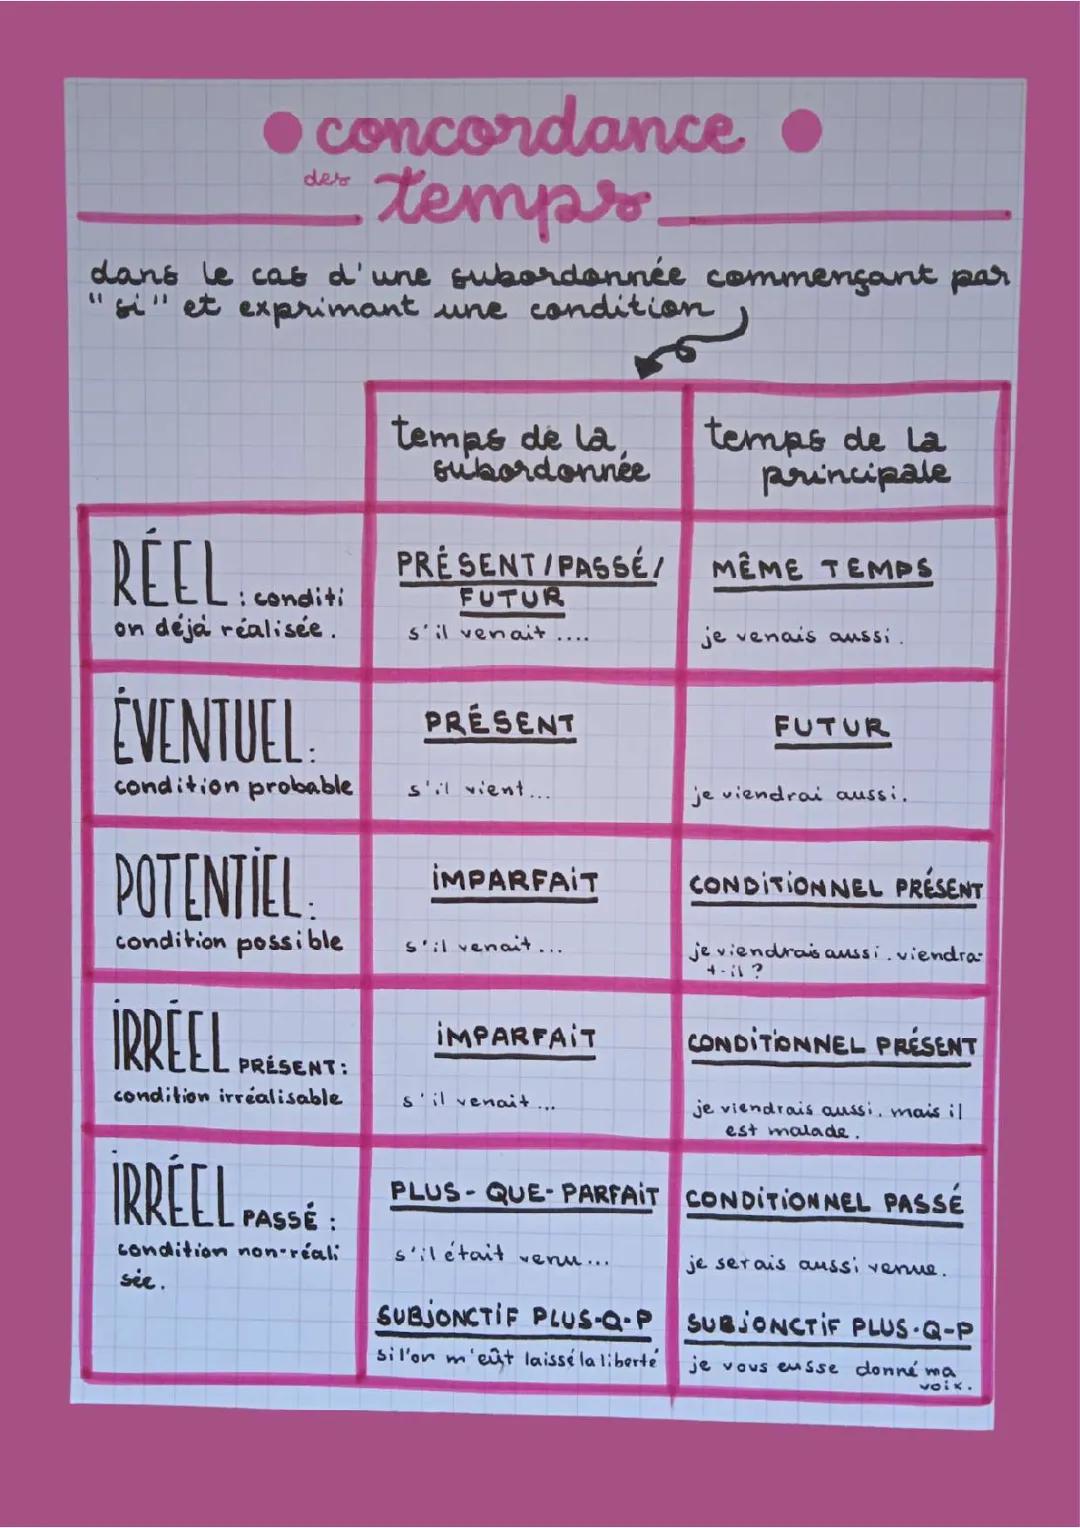 concordance
des temps
dans le cas d'une subordonnée commençant par
"si" et exprimant une condition
temps de la
subordonnée
temps de la
principale
RÉEL : conditi
on déjà réalisée.
PRÉSENT/PASSÉ/
FUTUR
s'il venait ....
MÊME TEMPS
je venais aussi.
ÉVENTUEL:
condition probable
PRÉSENT
s'il vient...
FUTUR
je viendrai aussi.
POTENTIEL:
condition possible
IMPARFAIT
s'il venait...
CONDITIONNEL PRÉSENT
je viendrais aussi. viendra-
t-il?
IRRÉEL PRÉSENT:
condition irréalisable
IMPARFAIT
s'il venait...
CONDITIONNEL PRÉSENT
je viendrais aussi, mais il
est malade.
IRRÉEL PASSÉ :
condition non-réali
sée.
PLUS-QUE-PARFAIT
s'il était venu...
SUBJONCTIF PLUS-Q-P
si l'on m'eût laissé la liberté
CONDITIONNEL PASSÉ
je serais aussi venue.
SUBJONCTIF PLUS-Q-P
je vous eusse donné ma
voix.